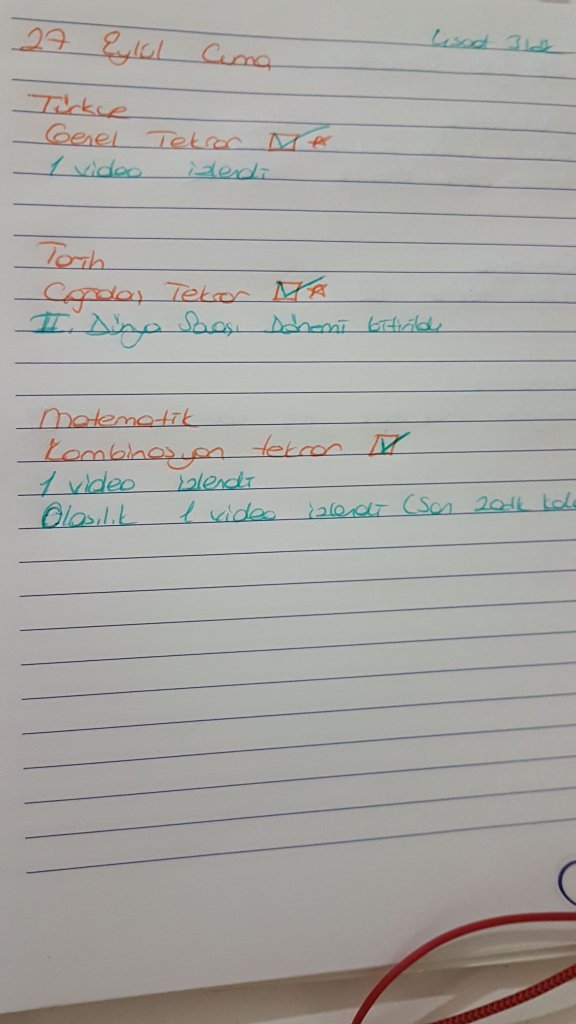 27 Eylül Cuma
4 saat 3 dk
Türkçe
Genel Tekrar
1 video izlendi
Tarih
Çağdaş Tekrar
II. Dünya Savaş. Dönemi bitirildi
Matematik
Kombinasyon tekrar
1 video izlendi
Olasılık 1 video izlendi (Son 20dk